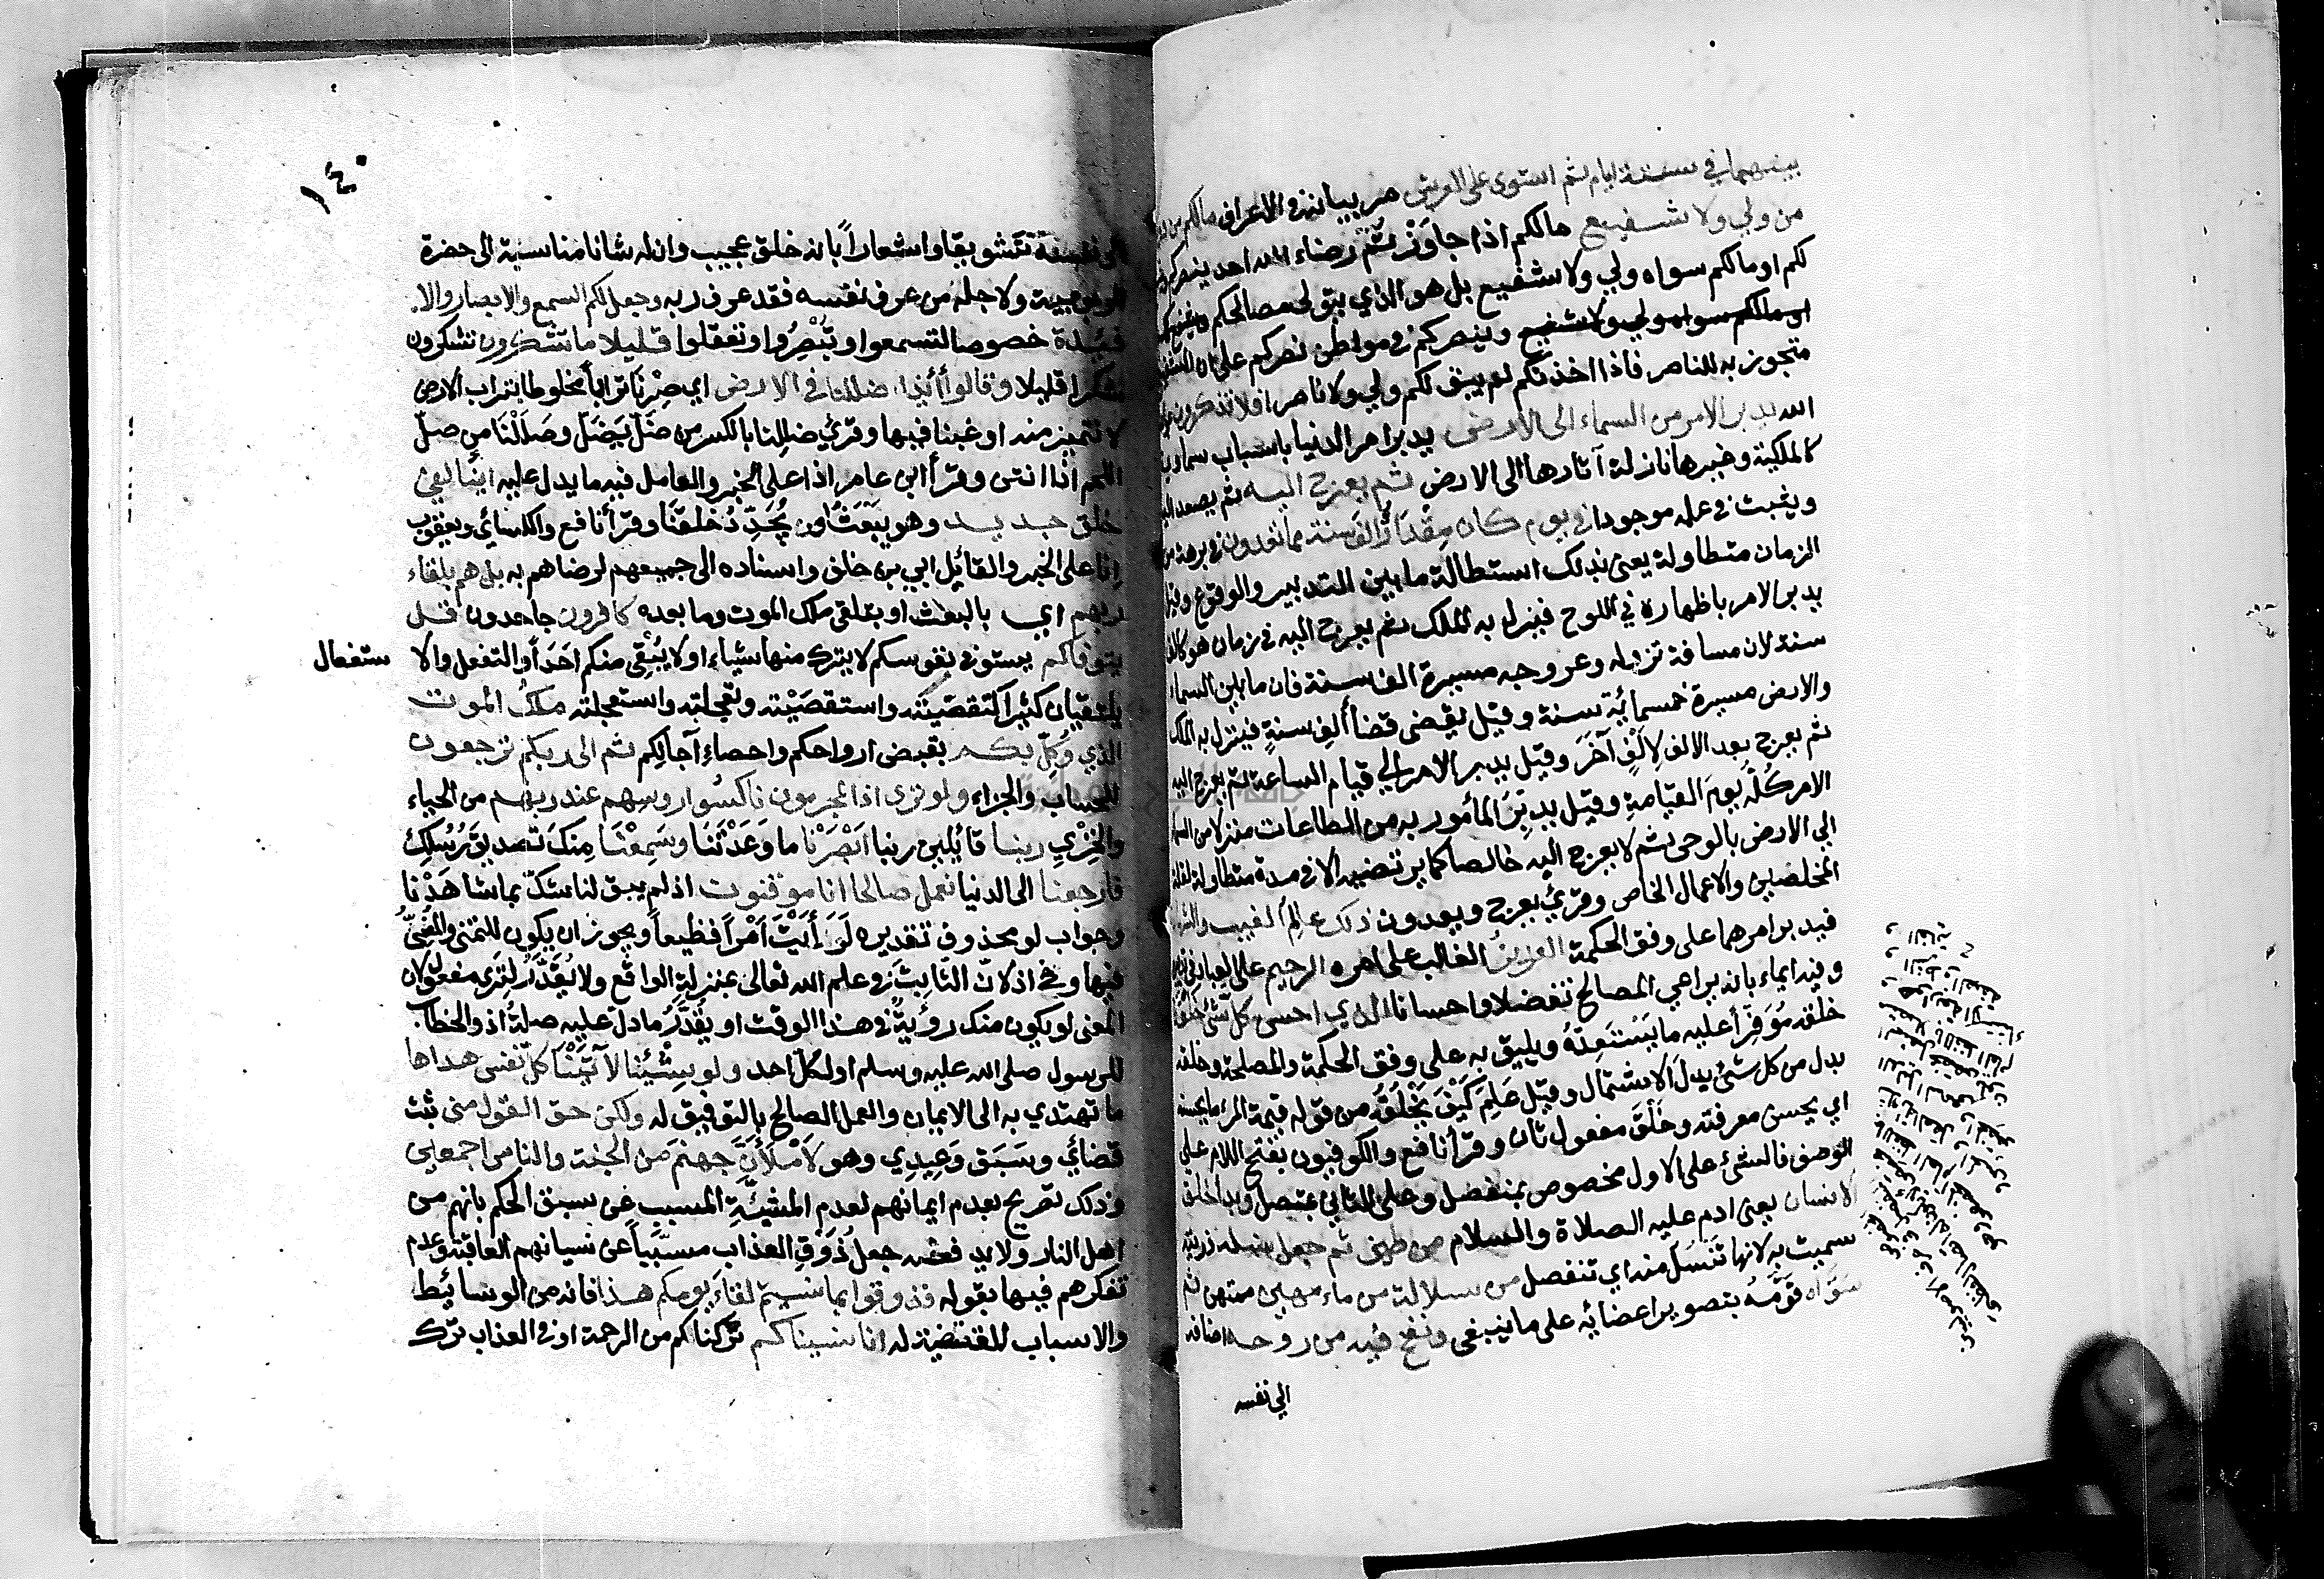 بينهما في ستة ايام ثم استوى على العرش مر بيانه في الاعراف مالكم من دونه
من ولي ولا شفيع مالكم اذا جاوزتم رضاء الله احد ينصركم
لكم او مالكم سواه ولي ولا شفيع بل هو الذي يتولى مصالحكم
او مالكم سواه ولي ولا شفيع وينصركم في مواطن نصركم على ان الشفيع
متجوز به للناصر فاذا اخذتكم لم يبق لكم ولي ولا ناصر افلا تتذكرون
الله يدبر الامر من السماء الى الارض يدبر امر الدنيا باسباب سماوية
كالملكية وغيرها نازلة آثارها الى الارض ثم يعرج اليه ثم يصعد اليه
ويثبت في علمه موجودا في يوم كان مقداره الف سنة مما تعدون في برهة من
الزمان متطاولة يعني بذلك استطالة ما بين التدبير والوقوع وقيل
يدبر الامر باظهاره في اللوح فينزل به الملك ثم يعرج اليه في زمان هو كالف
سنة لان مسافة نزوله وعروجه مسيرة الف سنة فان ما بين السماء
والارض مسيرة خمسمائة سنة وقيل يقضي قضأ الف سنة فينزل به الملك
ثم يعرج بعد الالف لالف آخر وقيل يدبر الامر الى قيام الساعة ثم يعرج اليه
الامر كله يوم القيامة وقيل يدبر المأمور به من الطاعات منزلا من السماء
الي الارض بالوحي ثم لا يعرج اليه خالصا كما يرتضيه الا في مدة متطاولة لقلة
المخلصين والاعمال الخاص وقرئ يعرج ويعدون ذلك عالم الغيب والشهادة
فيدبر امرهما على وفق الحكمة العزيز الغالب على امره الرحيم على العباد في
وفيه ايماء بانه يراعي المصالح تفضلا واحسانا الذي احسن كل شئ خلقه
خلقه موفرأ عليه ما يستعده ويليق به على وفق الحكمة والمصلحة وخلقه
بدل من كل شئ بدل الاشتمال وقيل علم كيف يخلقه من قوله قيمة المرء ما يحسنه
اي يحسن معرفته وخلق مفعول ثان وقرأ نافع والكوفيون بفتح اللام على
الوصف فالشئ على الاول مخصوص بمنفصل وعلى الثاني بمتصل وبدا خلق
الانسان يعني ادم عليه الصلاة والسلام من طين ثم جعل نسله ذريته
سميت به لانها تنسل منه اي تنفصل من سلالة من ماء مهين ممتهن ثم
سواه قومه بتصوير اعضائه على ما ينبغي ونفخ فيه من روحه اضافه
الي نفسه
١٤٠
الى نفسه تشويقا واشعاراً بانه خلق عجيب وان له شانا مناسبة الى حضرة
الربوبية ولاجله من عرف نفسه فقد عرف ربه وجعل لكم السمع والابصار والا
فئدة خصوصا لتسمعوا وتبصروا وتعقلوا قليلا ما تشكرون تشكرون
شكرا قليلا وقالوا أئذا ضللنا في الارض اي صرنا ترابأ مخلوطا بتراب الارض
لا تتميز منه او غبنا فيها وقرئ ضللنا بالكسر من ضل يضل وصللنا من صل
اللحم اذا انتن وقرأ ابن عامر اذا على الخبر والعامل فيه ما يدل عليه ائنا لفي
خلق جديد وهو يبعث او يجدد خلقنا وقرأ نافع والكسائي ويعقوب
انا على الخبر والقائل ابي بن خلف واسناده الى جميعهم لرضاهم به بل هم بلقاء
ربهم اي بالبعث او بتلقي ملك الموت وما بعده كافرون جاحدون قل
يتوفاكم يستوفي نفوسكم لا يترك منها شياء او لا يبقى منكم احداً والتفعل والا
ستفعال
يلتقيان كثيرا كتقصيته واستقصيته وتعجلته واستعجلته ملك الموت
الذي وكل بكم بقبض ارواحكم واحصاء آجالكم ثم الى ربكم ترجعون
للحساب والجزاء ولو ترى اذ المجرمون ناكسوا روسهم عند ربهم من الحياء
والخزي ربنا قائلين ربنا ابصرنا ما وعدتنا وسمعنا منك تصديق رسلك
فارجعنا الى الدنيا نعمل صالحا انا موقنون اذ لم يبق لنا شك بما شاهدنا
وجواب لو محذوف تقديره لرأيت امراً فظيعاً ويجوز ان يكون للتمني والمضي
فيها وفي اذ لان الثابت في علم الله تعالى بمنزلة الواقع ولا يقدر لترى مفعول لان
المعنى لو يكون منك رؤية في هذا الوقت او يقدر ما دل عليه صلة اذ والخطاب
للرسول صلى الله عليه وسلم اولكل احد ولو شئنا لآتينا كل نفس هداها
ما تهتدي به الى الايمان والعمل الصالح بالتوفيق له ولكن حق القول مني ثبت
قضائي وسبق وعيدي وهو لأملأن جهنم من الجنة والناس اجمعين
وذلك تصريح بعدم ايمانهم لعدم المشيئة المسبب عن سبق الحكم بانهم من
اهل النار ولا يدفعه جعل ذوق العذاب مسبباً عن نسيانهم العاقبة وعدم
تفكرهم فيها بقوله فذوقوا بما نسيتم لقاء يومكم هذا فانه من الوسائط
والاسباب المقتضية له انا نسيناكم تركناكم من الرحمة او في العذاب ترك